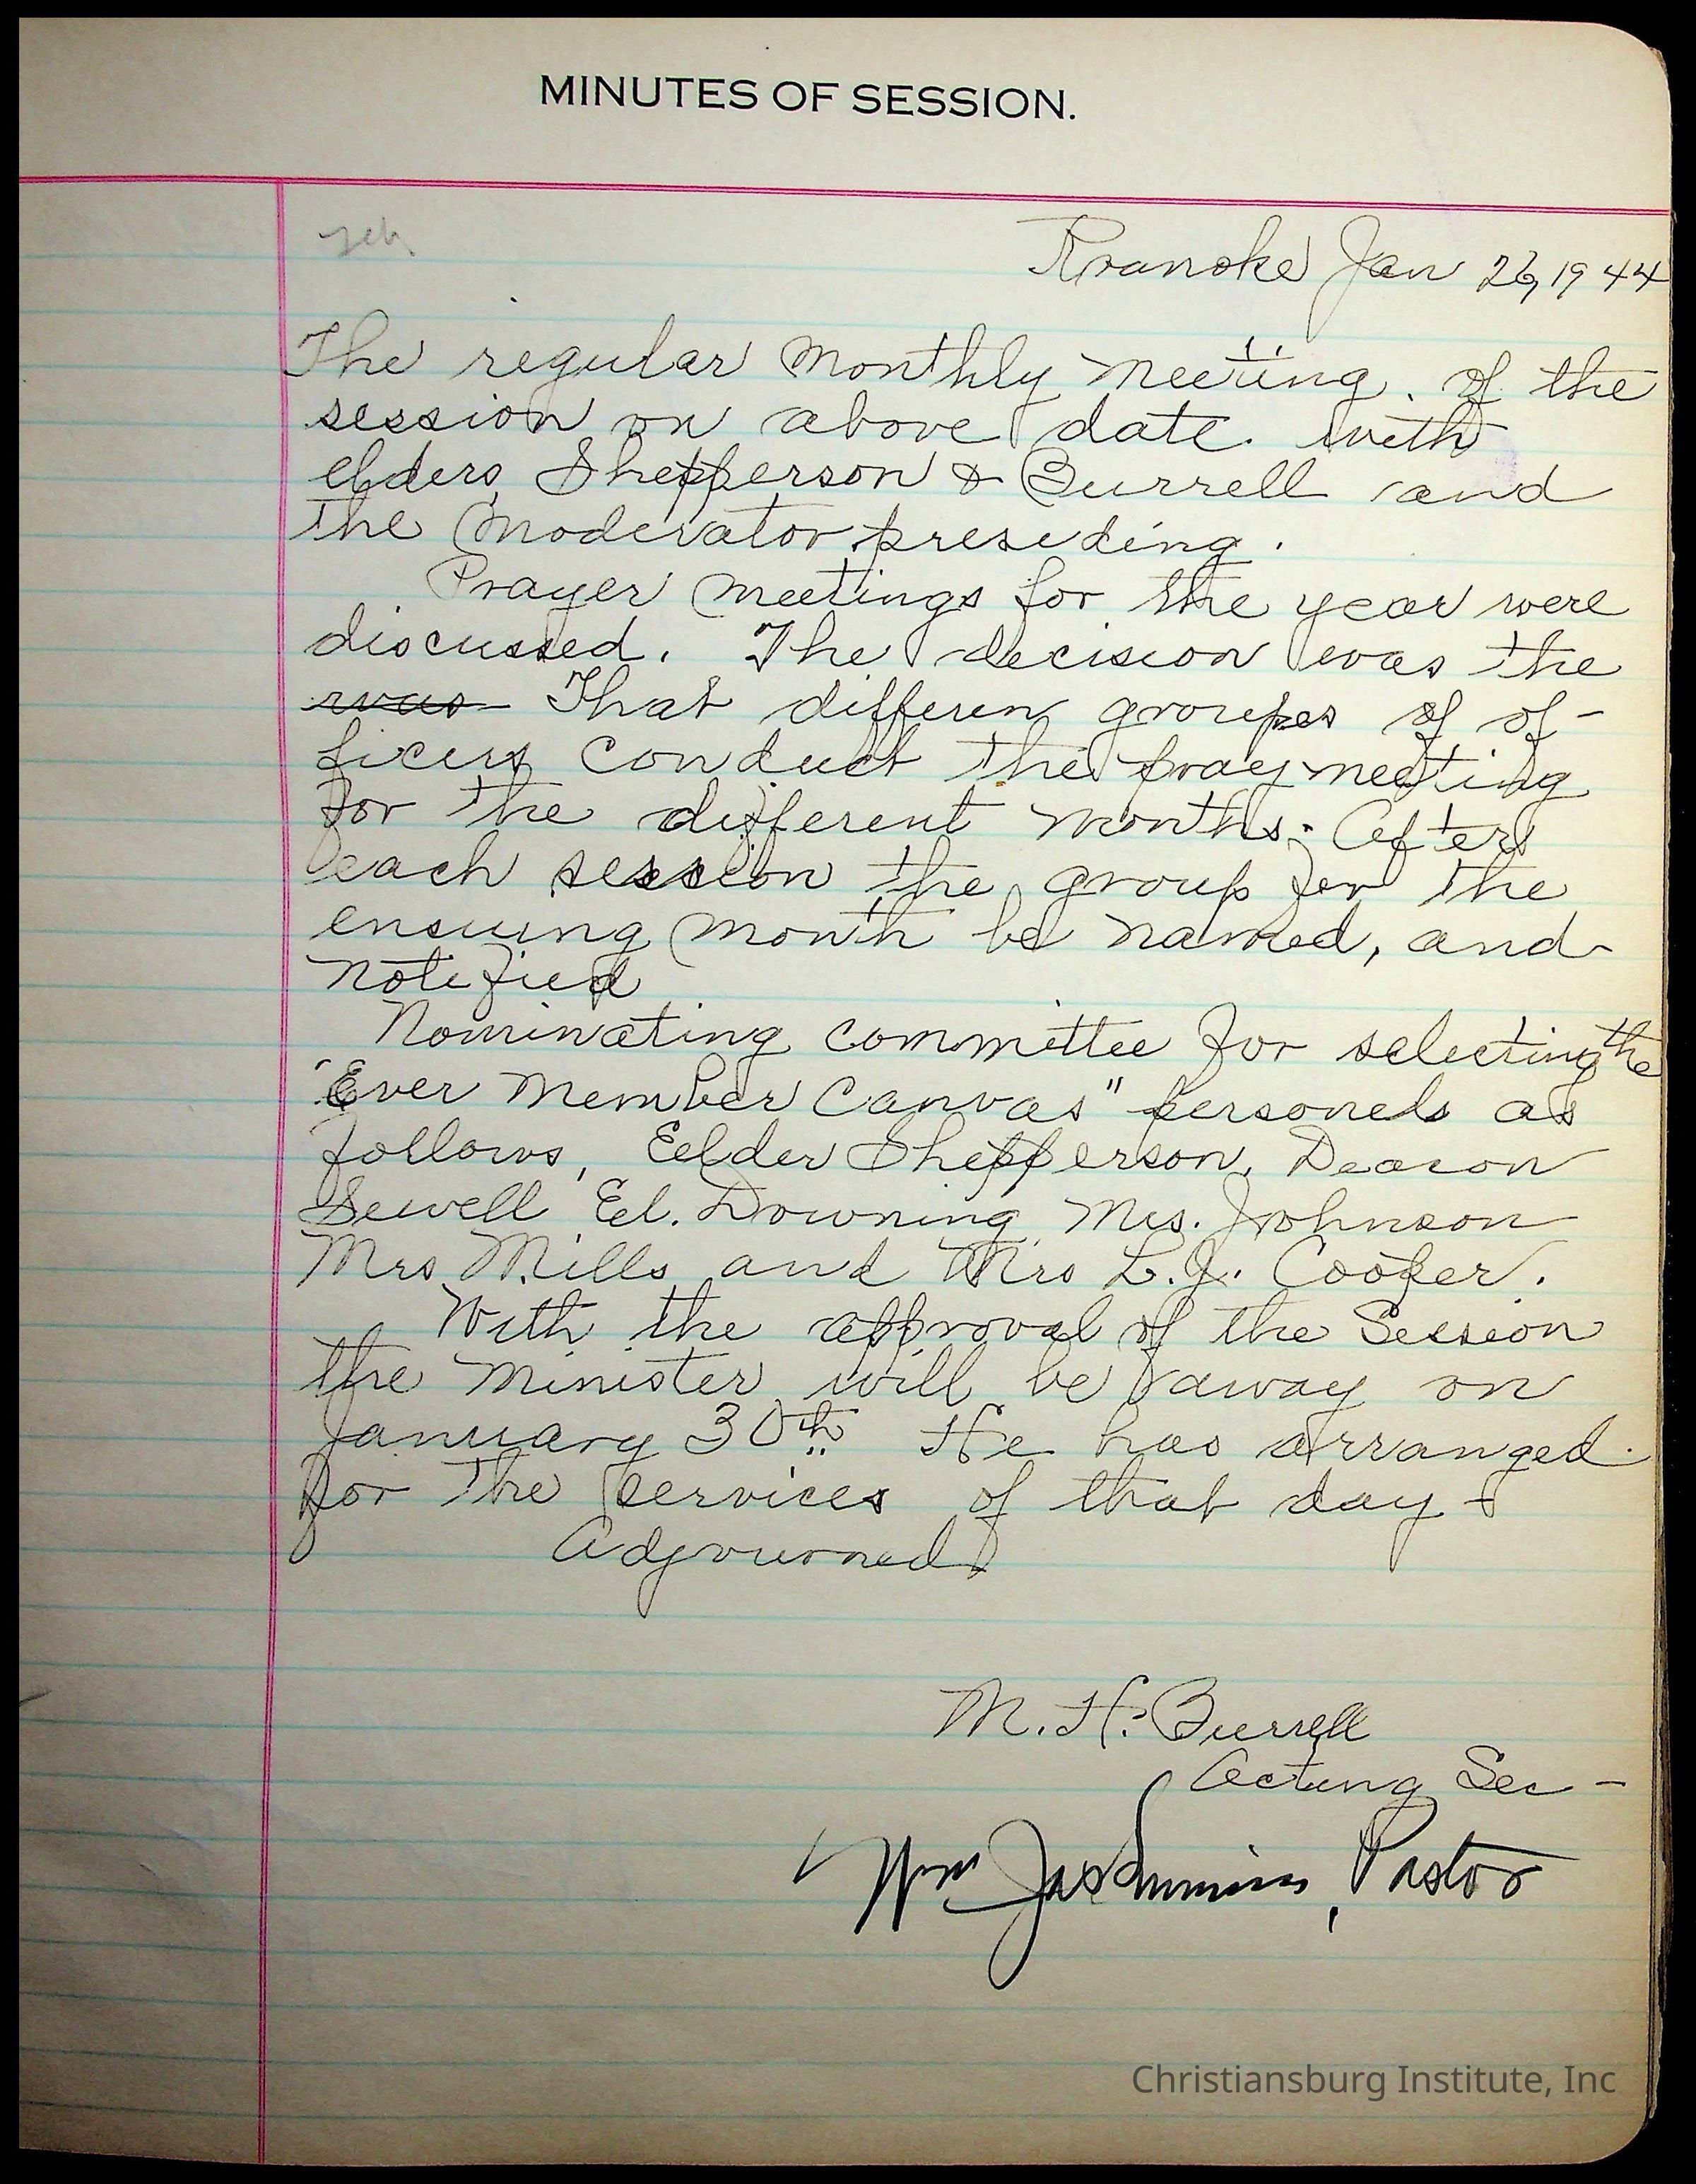 MINUTES OF SESSION.
Roanoke Jan 26, 1944
The regular monthly meeting. of the
session on above date. with
elders, Shepperson & Burrell and
the moderator presiding.
Prayer meetings for the year were
discussed. The decision was the
was That differen groupes of of-
ficers conduct the praymeeting
for the different months. After
each session the group for the
ensuing month be named, and
notified
Nominating committee for selecting the
"Ever Member Canvas" personels as
follows, Eelder Shepperson, Deacon
Sewell Ed. Downing Mrs. Johnson
Mrs Mills and Mrs L.J. Cooper.
With the approval of the Session
the minister will be away on
January 30th He has arranged
for the services of that day -
Adjourned
M. H. Burrell
Acting Sec -
Wm Jas Simmins, Pastor
Christiansburg Institute, Inc